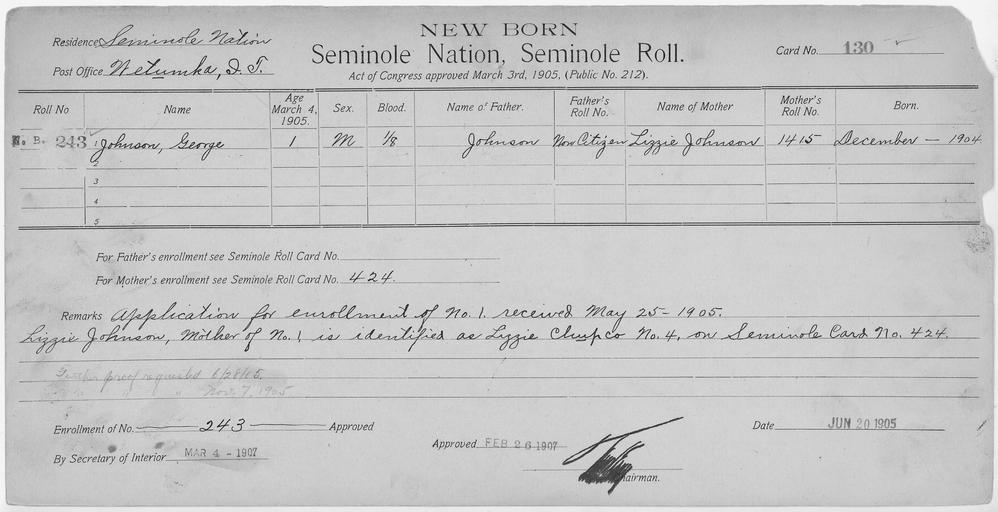 NEW BORN
Residence Seminole Nation
Seminole Nation, Seminole Roll.
Card No. 130
Post Office Wetumka, I. T.
Act of Congress approved March 3rd, 1905, (Public No. 212).
Roll No Name Age March 4, 1905. Sex. Blood. Name of Father. Father's Roll No. Name of Mother Mother's Roll No. Born.
N. B. 243 1 Johnson, George 1 M 1/8 Johnson Non Citizen Lizzie Johnson 1415 December — 1904
2
3
4
5
For Father's enrollment see Seminole Roll Card No.
For Mother's enrollment see Seminole Roll Card No. 424.
Remarks Application for enrollment of No. 1. received May 25 - 1905.
Lizzie Johnson, Mother of No. 1, is identified as Lizzie Chupco No. 4, on Seminole Card No. 424.
Further proof requested 6/28/05.
" " " Nov. 7, 1905
Enrollment of No. 243 Approved
Date JUN 20 1905
Approved FEB 26 1907
By Secretary of Interior MAR 4 - 1907
Chairman.